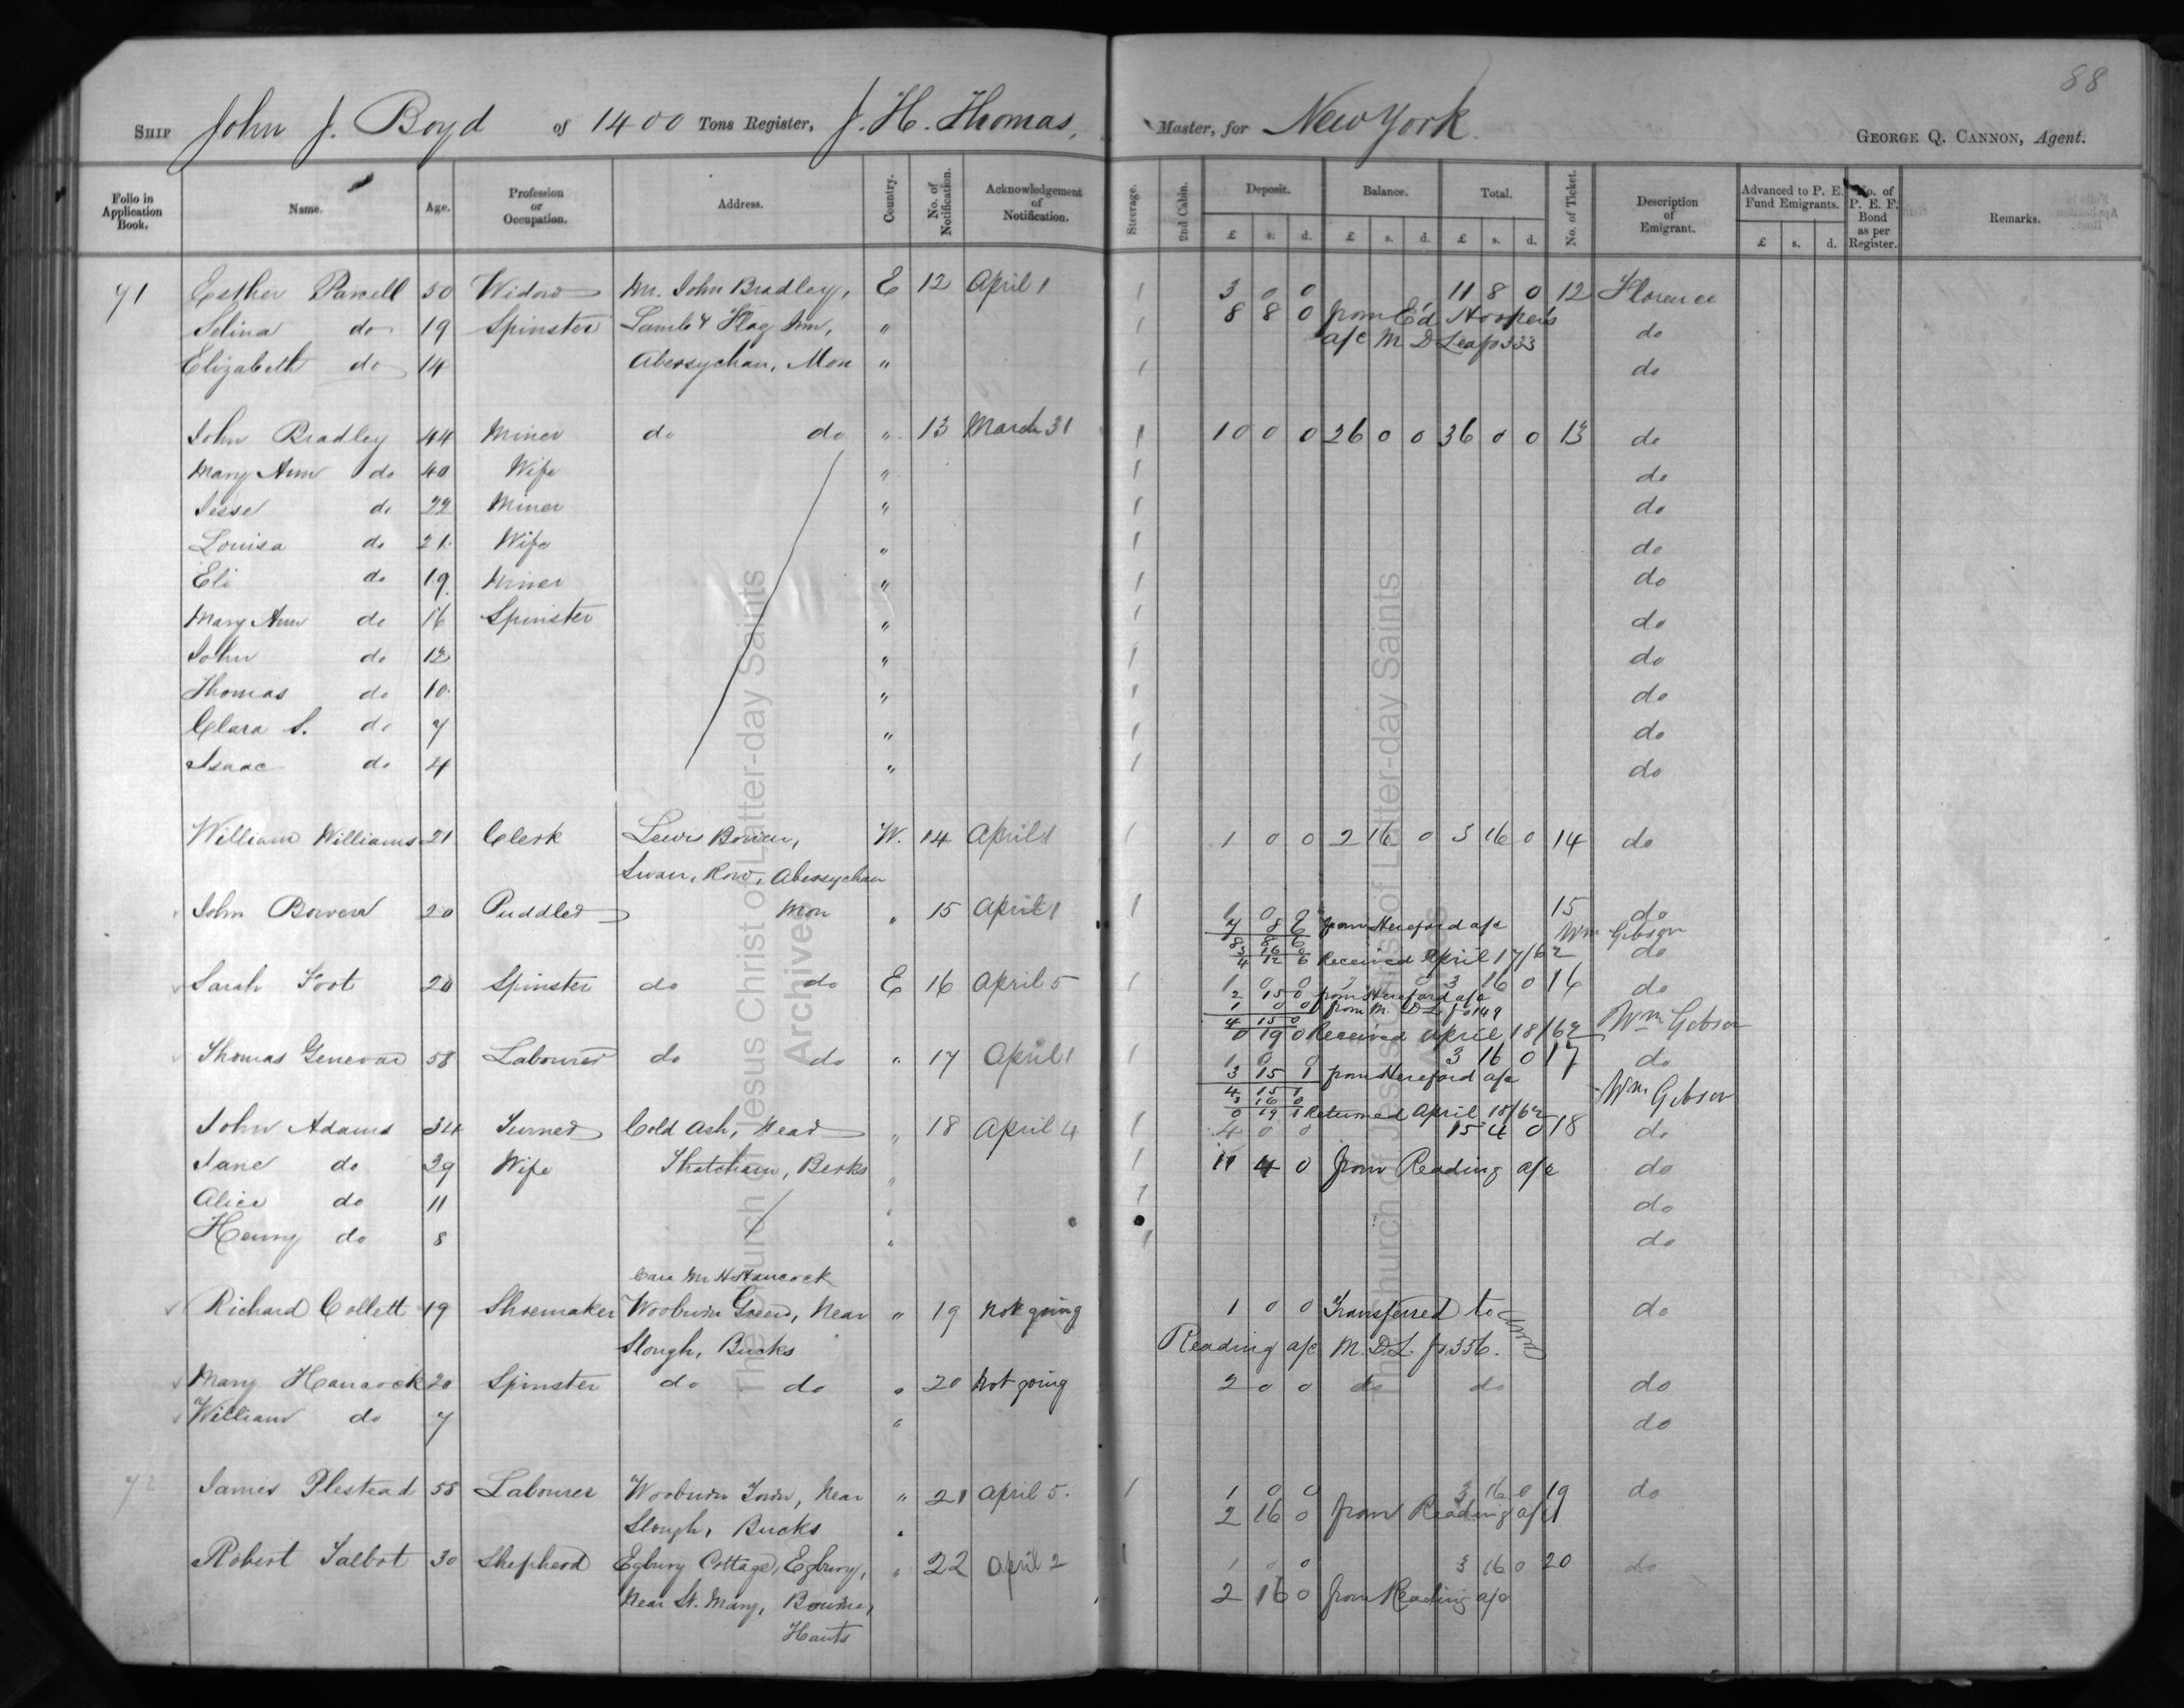 88
Ship John J. Boyd of 1400 Tons Register, J. H. Thomas, Master, for New York. GEORGE Q. CANNON, Agent.
Folio in Application Book. Name. Age. Profession or Occupation. Address. Country. No. of Notification. Acknowledgement of Notification. Steerage. 2nd Cabin. Deposit. Balance. Total. No. of Ticket. Description of Emigrant. Advanced to P. E. Fund Emigrants. No. of P. E. F. Bond as per Register. Remarks.
£ s. d. £ s. d. £ s. d. £ s. d.
71 Esther Purcell 50 Widow Mr. John Bradley, E 12 April 1 1 3 0 0 11 8 0 12 Florence
8 8 0 from Ed Hooper's
Selina do 19 Spinster Lamb & Flag Inn, " 1 a/c M D L ea fo 333 do
Elizabeth do 14 Abersychan, Mon " 1 do
John Bradley 44 Miner do do " 13 March 31 1 10 0 0 26 0 0 36 0 0 13 do
Mary Ann do 40 Wife " 1 do
Jesse do 22 Miner " 1 do
Louisa do 21 Wife " 1 do
Eli do 19 Miner " 1 do
Mary Ann do 16 Spinster " 1 do
John do 12 " 1 do
Thomas do 10 " 1 do
Clara S. do 7 " 1 do
Isaac do 4 " 1 do
William Williams 21 Clerk Lewis Bowen, W. 14 April 1 1 1 0 0 2 16 0 3 16 0 14 do
Swan, Row, Abersychan
John Bowen 20 Puddler Mon " 15 April 1 1 1 0 0 15 do
7 8 6 from Hereford a/c Wm Gibson
8 8 6
3 16 0 do
4 12 6 Received April 17/62
Sarah Foot 20 Spinster do do E 16 April 5 1 1 0 0 3 16 0 16 do
2 15 0 from Hereford a/c
1 0 0 from M. D L fo 149
4 15 0 Wm Gibson
0 19 0 Received April 18/62
Thomas Genevar 58 Labourer do do " 17 April 1 1 1 0 0 3 16 0 17 do
3 15 1 from Hereford a/c
4 15 1 Wm Gibson
3 16 0
0 19 1 Returned April 18/62
John Adams 34 Turner Cold Ash, Near " 18 April 4 1 4 0 0 15 4 0 18 do
Jane do 39 Wife Thatcham, Berks " 1 11 4 0 from Reading a/c do
Alice do 11 " 1 do
Henry do 8 " 1 do
Care Mr H Hancock
Richard Collett 19 Shoemaker Wooburn Green, Near " 19 Not going 1 0 0 Transferred to do
Slough, Bucks Reading a/c M. D. L. fo. 356.
Mary Hancock 20 Spinster do do " 20 Not going 2 0 0 do do do
William do 7 " do
72 James Plestead 58 Labourer Wooburn Town, Near " 21 April 5. 1 1 0 0 3 16 0 19 do
Slough, Bucks 2 16 0 from Reading a/c
Robert Talbot 30 Shepherd Egbury Cottage, Egbury, " 22 April 2 1 1 0 0 3 16 0 20 do
Near St. Mary, Bourne, 2 16 0 from Reading a/c
Hants
The Church of Jesus Christ of Latter-day Saints
Archives
The Church of Jesus Christ of Latter-day Saints
Archives